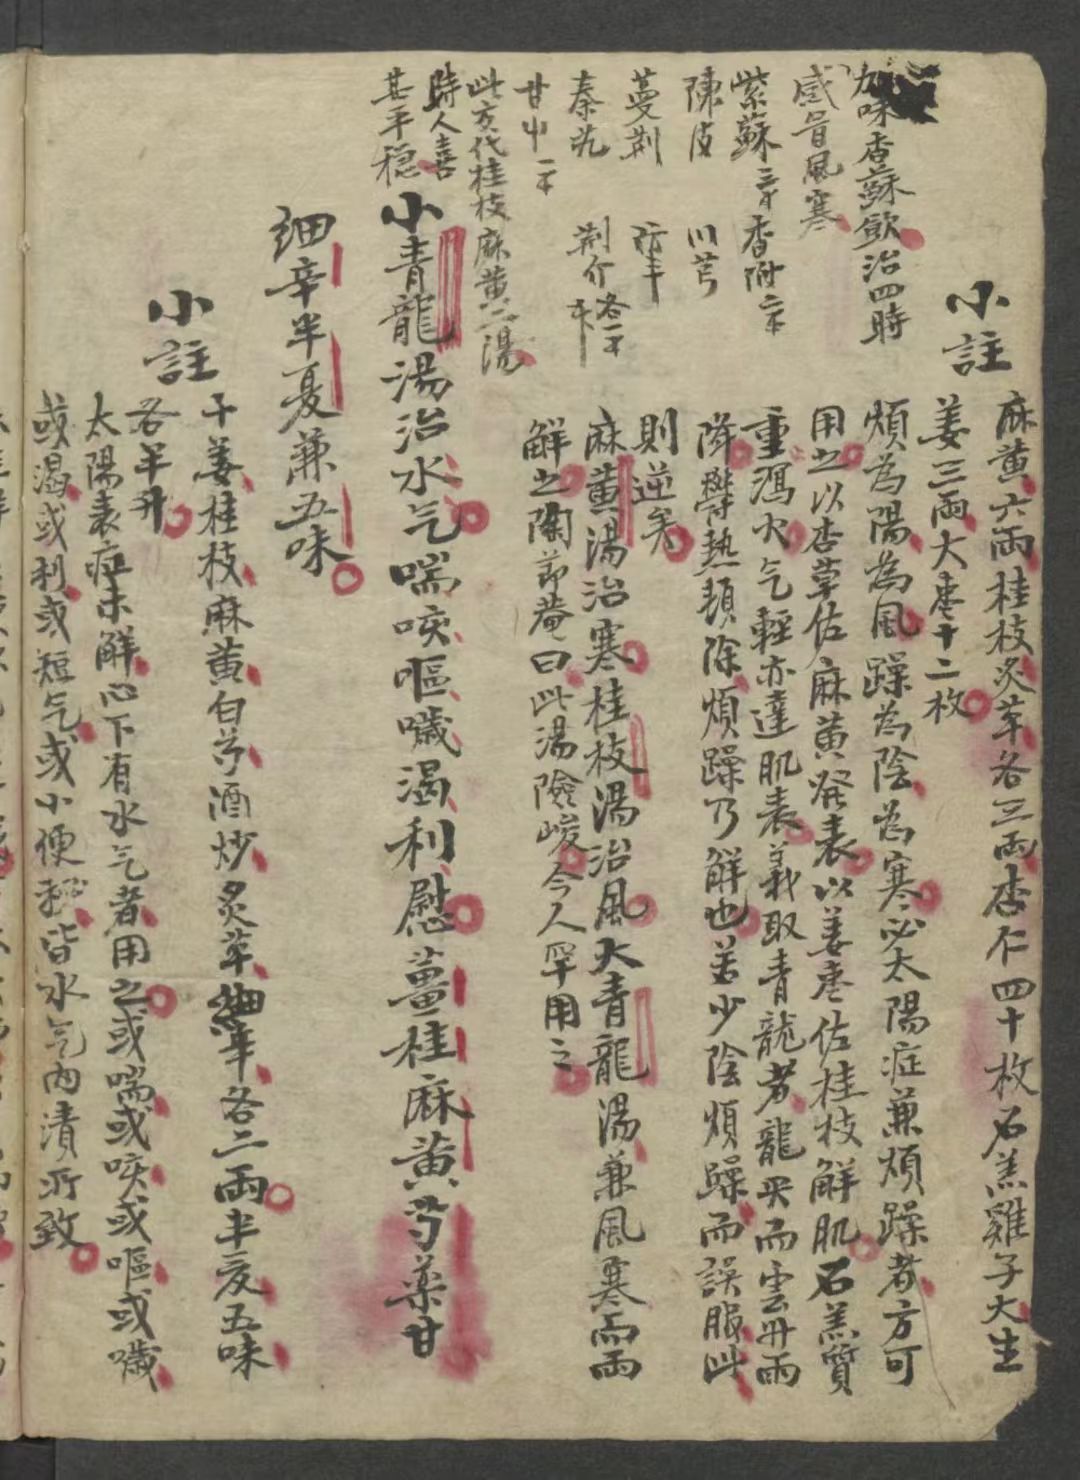 小註
麻黄六兩桂枝炙草各三兩杏仁四十枚石羔雞子大生
姜三兩大枣十二枚
煩為陽為風躁為陰為寒必太陽症兼煩躁者方可
用之以杏草佐麻黄発表以姜枣佐桂枝解肌石羔質
重瀉火气輕亦達肌表義取青龍者龍兴而雲升雨
降欝熱頓除煩躁乃解也若少陰煩躁而誤服此
則逆矣
麻黄湯治寒桂枝湯治風大青龍湯兼風寒而兩
解之陶節菴曰此湯險峻今人罕用之
加味香蘇飲治四時
感冒風寒
紫蘇三戈香附二个
陳皮 川芎
蔓荆 防丰
秦艽 荆介各一个
甘中一个
此方代桂枝麻黄二湯
時人喜
甚平穏
小青龍湯治水气喘咳嘔噦渴利慰薑桂麻黄芍薬甘
细辛半夏兼五味
小註
干姜桂枝麻黄白芍酒炒炙草細辛各二兩半夏五味
各半升
太陽表症未解心下有水气者用之或喘或咳或嘔或噦
或渴或利或短气或小便秘皆水气内漬所致